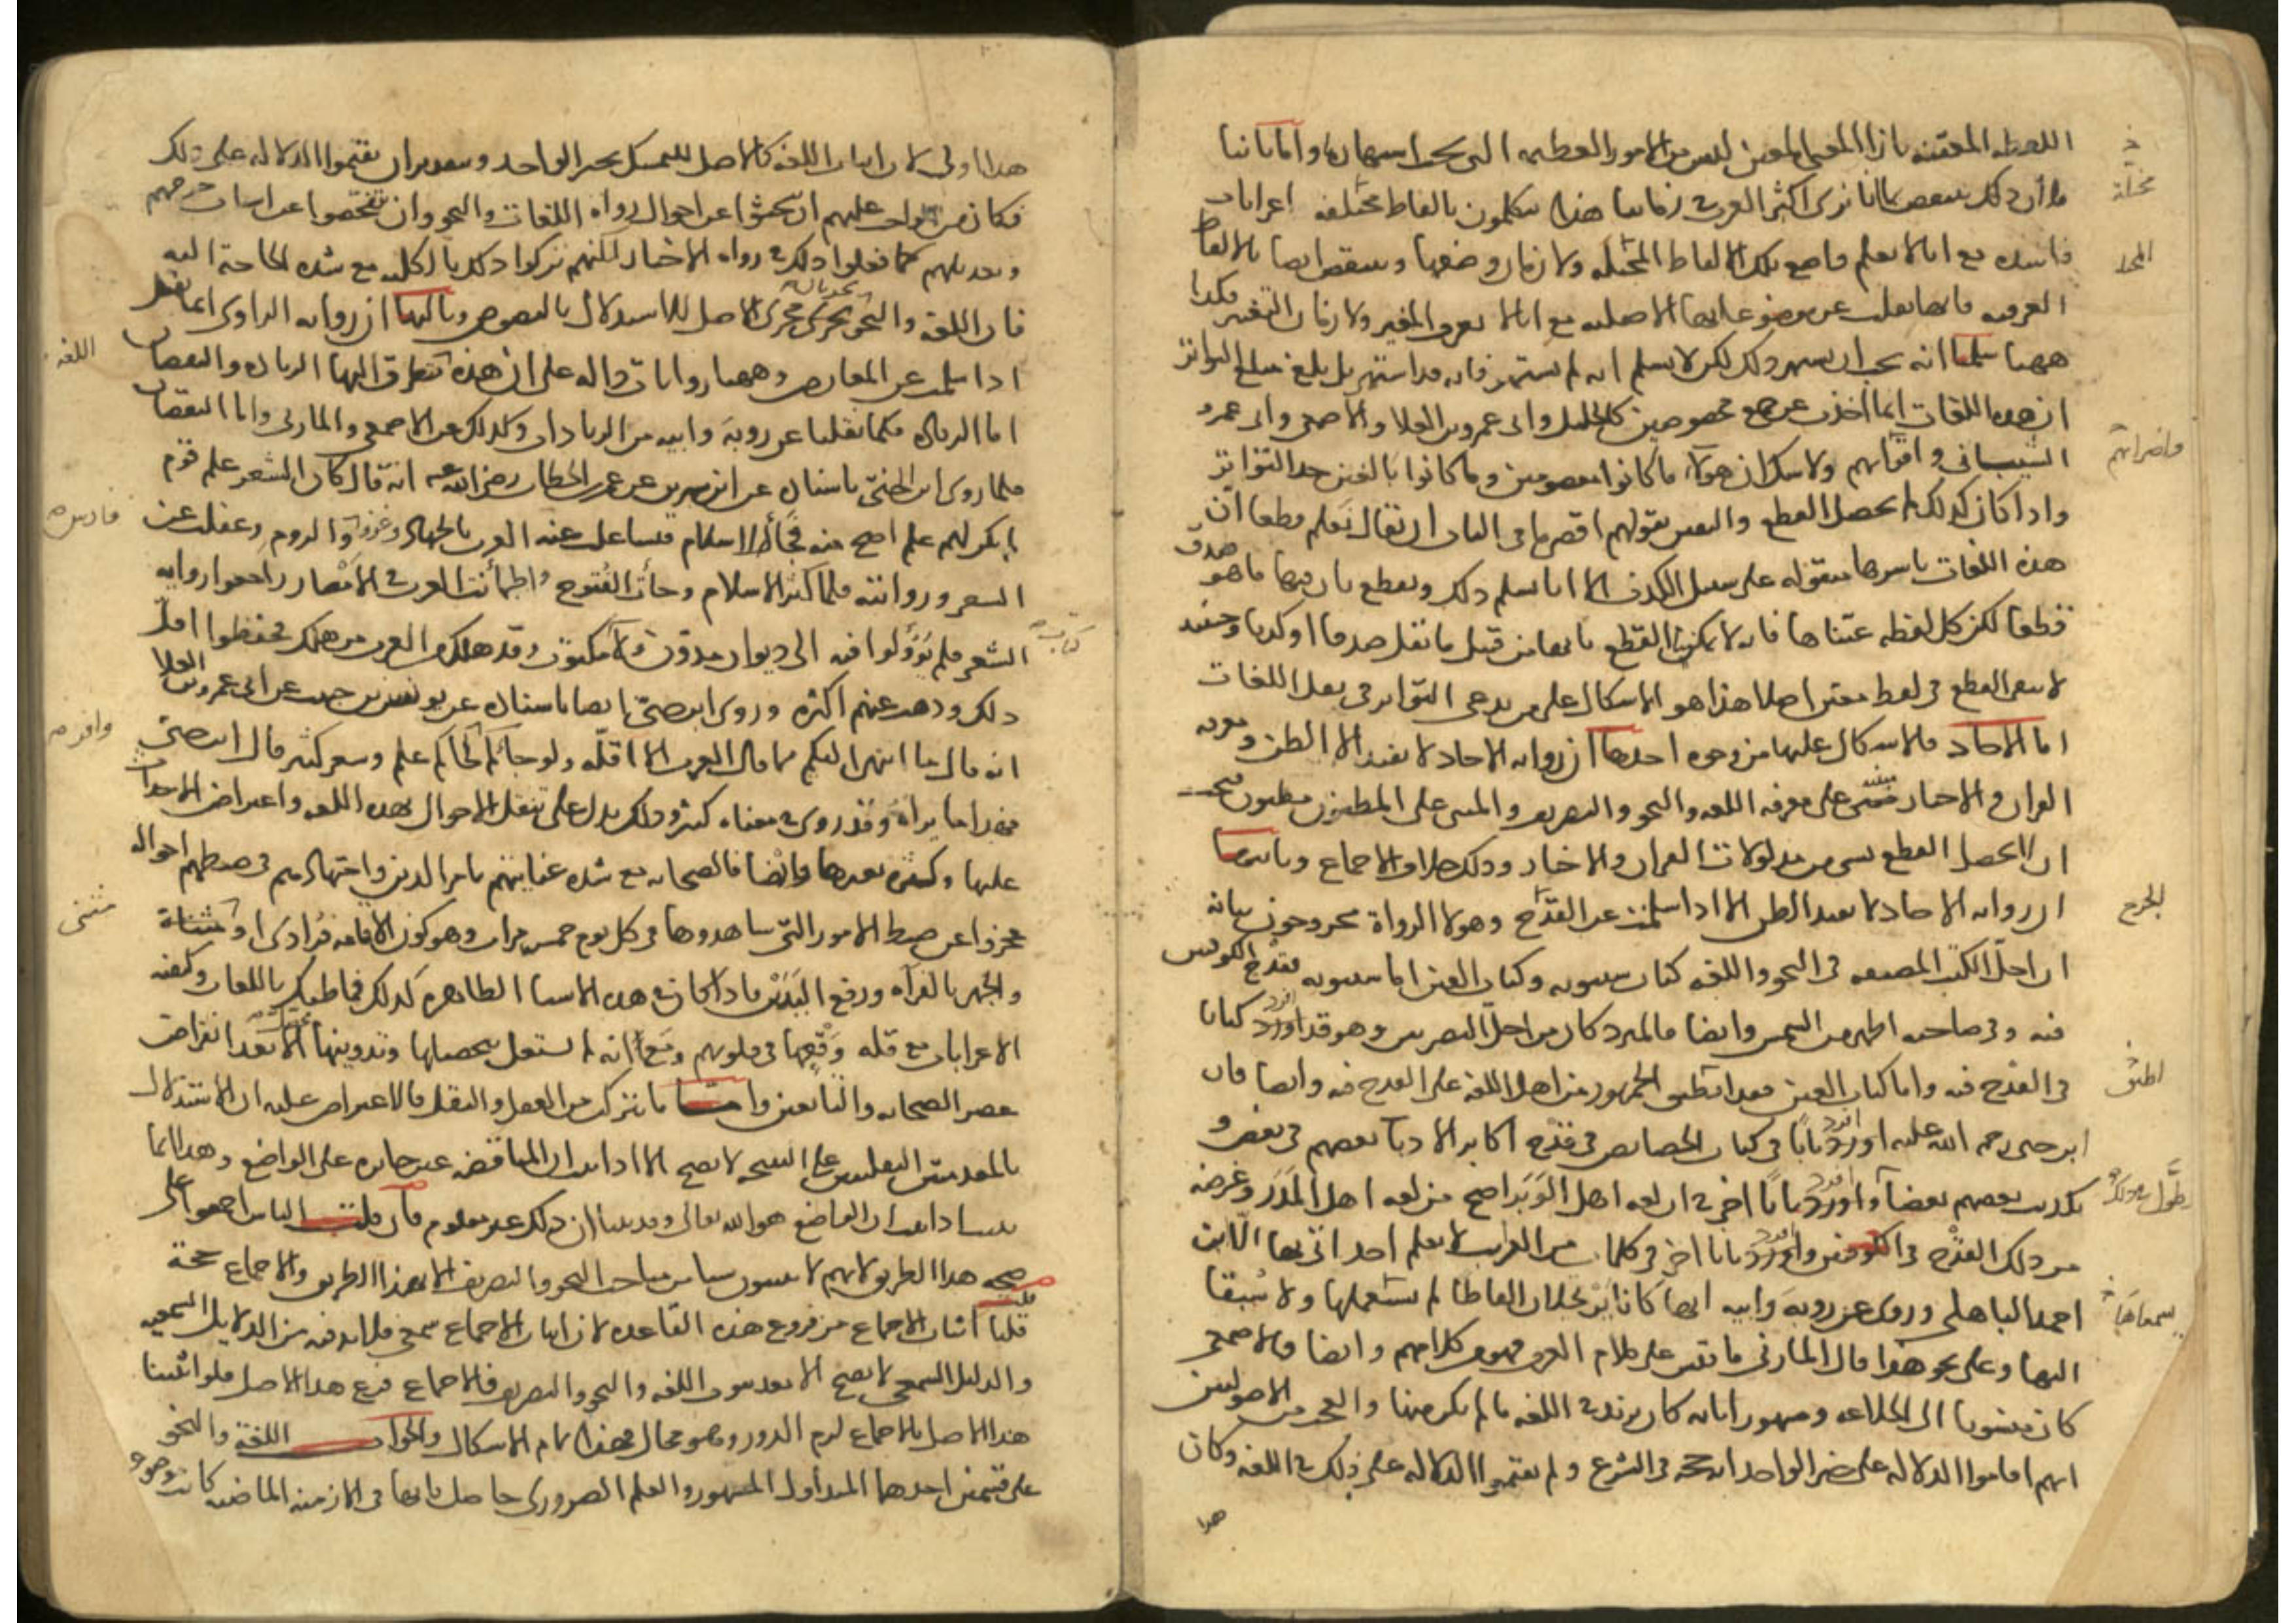 اللفظة المعينة بازاء المعنى المعين ليس من الامور العظيمة التي يجب اشتهارها واما ثانيا
فلأن ذلك ينتقض بانا نرى اكثر العرب في زماننا هذا يتكلمون بالفاظ مختلفة اعرابات
فاسدة مع انا لا نعلم واضع تلك الالفاظ المختلة ولا زمان وضعها وينتقض ايضا بالالفاظ
العرفية فانها نقلت عن موضوعاتها الاصلية مع انا لا نعرف المغير ولا زمان التغيير فكذا
ههنا سلمنا انه يجب ان يشتهر ذلك لكن لا نسلم انه لم يشتهر فانه قد اشتهر بل بلغ مبلغ التواتر
ان هذه اللغات انما اخذت عن جمع مخصوصين كالخليل وابي عمرو بن العلا والاصمعي وابي عمرو
الشيباني واقرانهم ولا شك ان هولاء ما كانوا معصومين وما كانوا بالغين حد التواتر
واذا كان كذلك لم يحصل القطع واليقين بقولهم اقصى ما في الباب ان يقال نعلم قطعا ان
هذه اللغات باسرها منقوله على سبيل الكذب الا انا نسلم ذلك ونقطع بان فيها ما هو صدق
قطعا لكن كل لفظه عيناها فانه لا يمكننا القطع بانها من قبيل ما نقل صدقا او كذبا وحينئذ
لا يبقى القطع في لفظ معين اصلا هذا هو الاشكال على من يدعي التواتر في نقل اللغات
اما الاحاد فالاشكال عليها من وجوه احدها ان رواية الاحاد لا تفيد الا الظن ومعرفه
القران والاخبار مبنى على معرفة اللغه والنحو والتصريف والمبنى على المظنون مظنون فيجب
ان لا يحصل القطع بشي من مدلولات القران والاخبار وذلك خلاف الاجماع وثانيها
ان رواية الاحاد لا تفيد الظن الا اذا سلمت عن القدح وهولا الرواة مجروحون بيانه
ان اجل الكتب المصنفه في النحو واللغه كتاب سيبويه وكتاب العين اما سيبويه فقدح الكوفيين
فيه وفي صاحبه اظهر من الشمس وايضا فالمبرد كان من اجل البصريين وهو قد اورد كتابا
في القدح فيه واما كتاب العين فقد اطبق الجمهور من اهل اللغة على القدح فيه وايضا فان
ابن جنى رحمه الله عليه اورد بابا في كتاب الخصائص في قدح اكابر الادبا بعضهم في بعض و
تكذيب بعضهم بعضا واورد بابا اخر في ان لغه اهل الوبر اصح من لغه اهل المدر وغرضه
من ذلك القدح في الكوفيين واورد بابا اخر في كلمات من الغريب لا يعلم احد اتى بها الا ابن
احمد الباهلي وروى عن روبة وابيه انهما كانا يرتجلان الفاظا لم يستعملها ولا سبقا
اليها وعلى نحو هذا قال المازني ما قيس على كلام العرب فهو من كلامهم وايضا فالاصمعي
كان منسوبا الى الخلاعه ومشهورا بانه كان يزيد في اللغه ما لم يكن منها والعجب من الاصوليين
انهم اقاموا الدلاله على خبر الواحد انه حجه في الشرع ولم يقيموا الدلاله على ذلك في اللغه وكان
هذا
مختلة
الجرح
اطبق
هذا اولى لان اثبات اللغه كالاصل للتمسك بخبر الواحد وبتقدير ان يقيموا الدلاله على ذلك
فكان من الواجب عليهم ان يبحثوا عن احوال رواه اللغات والنحو وان يتفحصوا عن اسباب جرحهم
وتعديلهم كما فعلوا ذلك في رواه الاخبار لكنهم تركوا ذلك بالكليه مع شده الحاجة اليه
فان اللغه والنحو يجرى مجرى الاصل للاستدلال بالنصوص وثالثها ان روايه الراوى انما تقبل
اذا سلمت عن المعارض وههنا روايات دالة على ان هذه تتطرق اليها الزياده والنقصان
اما الزياده فكما نقلنا عن روبة وابيه من الزيادات وكذلك عن الاصمعي والمازني واما النقصان
فلما روى ابن جنى باسناده عن ابن سيرين عن عمر بن الخطاب رضي الله عنه انه قال كان الشعر علم قوم
لم يكن لهم علم اصح منه فجا الاسلام فتشاغلت عنه العرب بالجهاد وغزوا والروم وغفلت عن
الشعر وروايته فلما كثر الاسلام وجأت الفتوح واطمأنت العرب في الامصار راجعوا روايه
الشعر فلم يؤولوا فيه الى ديوان مدون ولا مكتوب وقد هلك من العرب من هلك فحفظوا اقل
ذلك وذهب عنهم اكثره وروى ابن جنى ايضا باسناده عن يونس بن حبيب عن ابي عمرو بن العلا
انه قال ما انتهى اليكم مما قالت العرب الا اقله ولو جائكم لجاكم علم وشعر كثير قال ابن جنى
فهذا ما نراه وقد روى في معناه كثير وذلك يدل على تنقل الاحوال بهذه اللغه واعتراض الاحداث
عليها وكثره تغيرها وايضا فالصحابه مع شده عنايتهم بامر الدين واجتهادهم في ضبطهم احواله
عجزوا عن ضبط الامور التي شاهدوها في كل يوم خمس مرات وهو كون الاقامه فرادى او مثناة
والجهر بالقرآه ورفع اليدين فاذا كان في هذه الاشيا الظاهره كذلك فما ظنك باللغات وكيفيه
الاعرابات مع قله وقعها في قلوبهم ومع انه لم يشتغل بتحصيلها وتدوينها الا بعد انقراض
عصر الصحابه والتابعين واما ما يتركب من العقل والنقل فالاعتراض عليه ان الاستدلال
بالمقدمتين النقليتين على النتيجه لا يصح الا اذا ثبت ان المناقضه غير جايزه على الواضع وهذا انما
يثبت اذا ثبت ان الواضع هو الله تعالى وقد بينا ان ذلك غير معلوم فان قلت الناس اجمعوا على
صحه هذا الطريق لانهم لا يثبتون شيا من مباحث النحو والتصريف الا بهذا الطريق والاجماع حجة
قلنا اثبات الاجماع من فروع هذه القاعده لان اثبات الاجماع سمعي فلا بد فيه من الدلايل السمعيه
والدليل السمعي لا يصح الا بعد ثبوت اللغه والنحو والتصريف فالاجماع فرع هذا الاصل فلو اثبتنا
هذا الاصل بالاجماع لزم الدور وهو محال فهذا تمام الاشكال والجواب اللغة والنحو
على قسمين احدهما المتداول المشهور والعلم الضروري حاصل بانها في الازمنه الماضيه كانت موضوعه
اللغه
مثنى